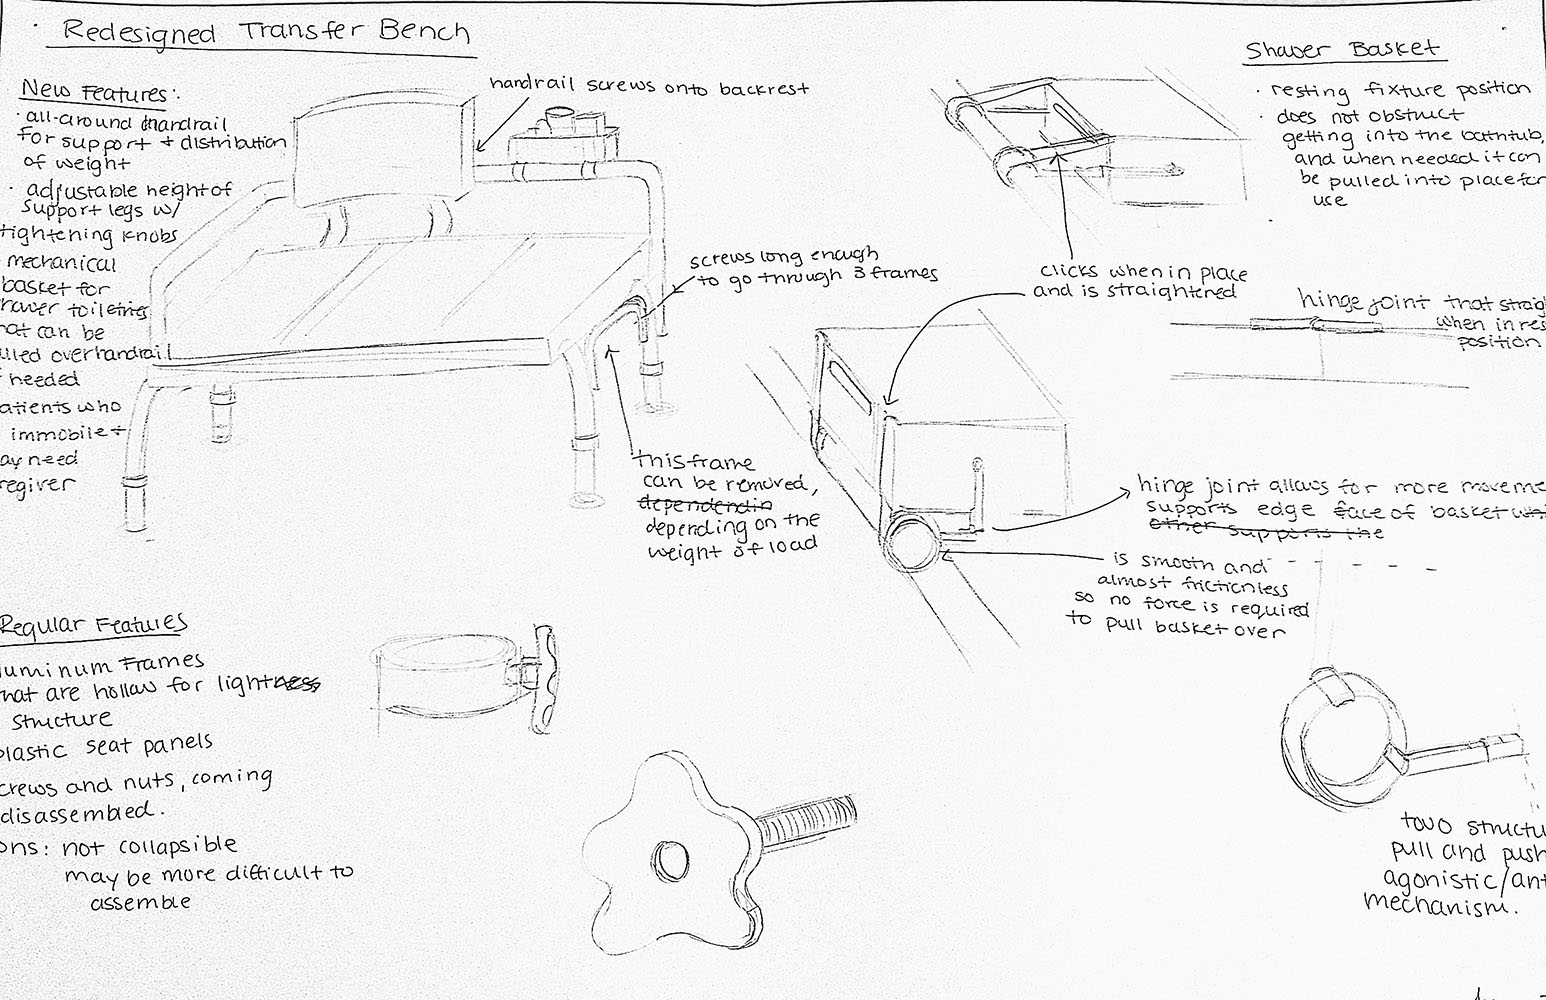 Redesigned Transfer Bench
New Features:
· all-around handrail
for support + distribution
of weight
· adjustable height of
support legs w/
tightening knobs
mechanical
basket for
hower toiletries
hat can be
lled over handrail
needed
atients who
immobile +
ay need
regiver
handrail screws onto backrest
screws long enough
to go through 3 frames
this frame
can be removed,
dependendin
depending on the
weight of load
Regular Features
luminum frames
hat are hollow for lightness
structure
plastic seat panels
crews and nuts, coming
disassembled.
ons: not collapsible
may be more difficult to
assemble
Shower Basket
· resting fixture position
· does not obstruct
getting into the bathtub,
and when needed it can
be pulled into place for
use
clicks when in place
and is straightened
hinge joint that straig
when in res
position
hinge joint allows for more moveme
supports edge face of basket whi
other supports the
is smooth and
almost frictionless
so no force is required
to pull basket over
two structu
pull and push
agonistic/ant
mechanism.